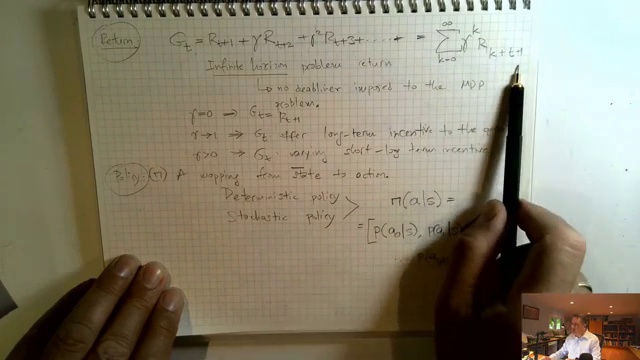 Return G_t = R_{t+1} + γ R_{t+2} + γ² R_{t+3} + ...... + = ∑_{k=0}^{∞} γ^k R_{k+t+1}
Infinite horizon problem return
↳ no deadline imposed to the MDP
problem.
γ=0 → G_t = R_{t+1}
γ→1 → G_t offer long-term incentive to the
γ>0 → G_t varying short-log term incentive
Policy (π) A mapping from state to action.
Deterministic policy
Stochastic policy
π(a|s) =
= [p(a_0|s), p(a